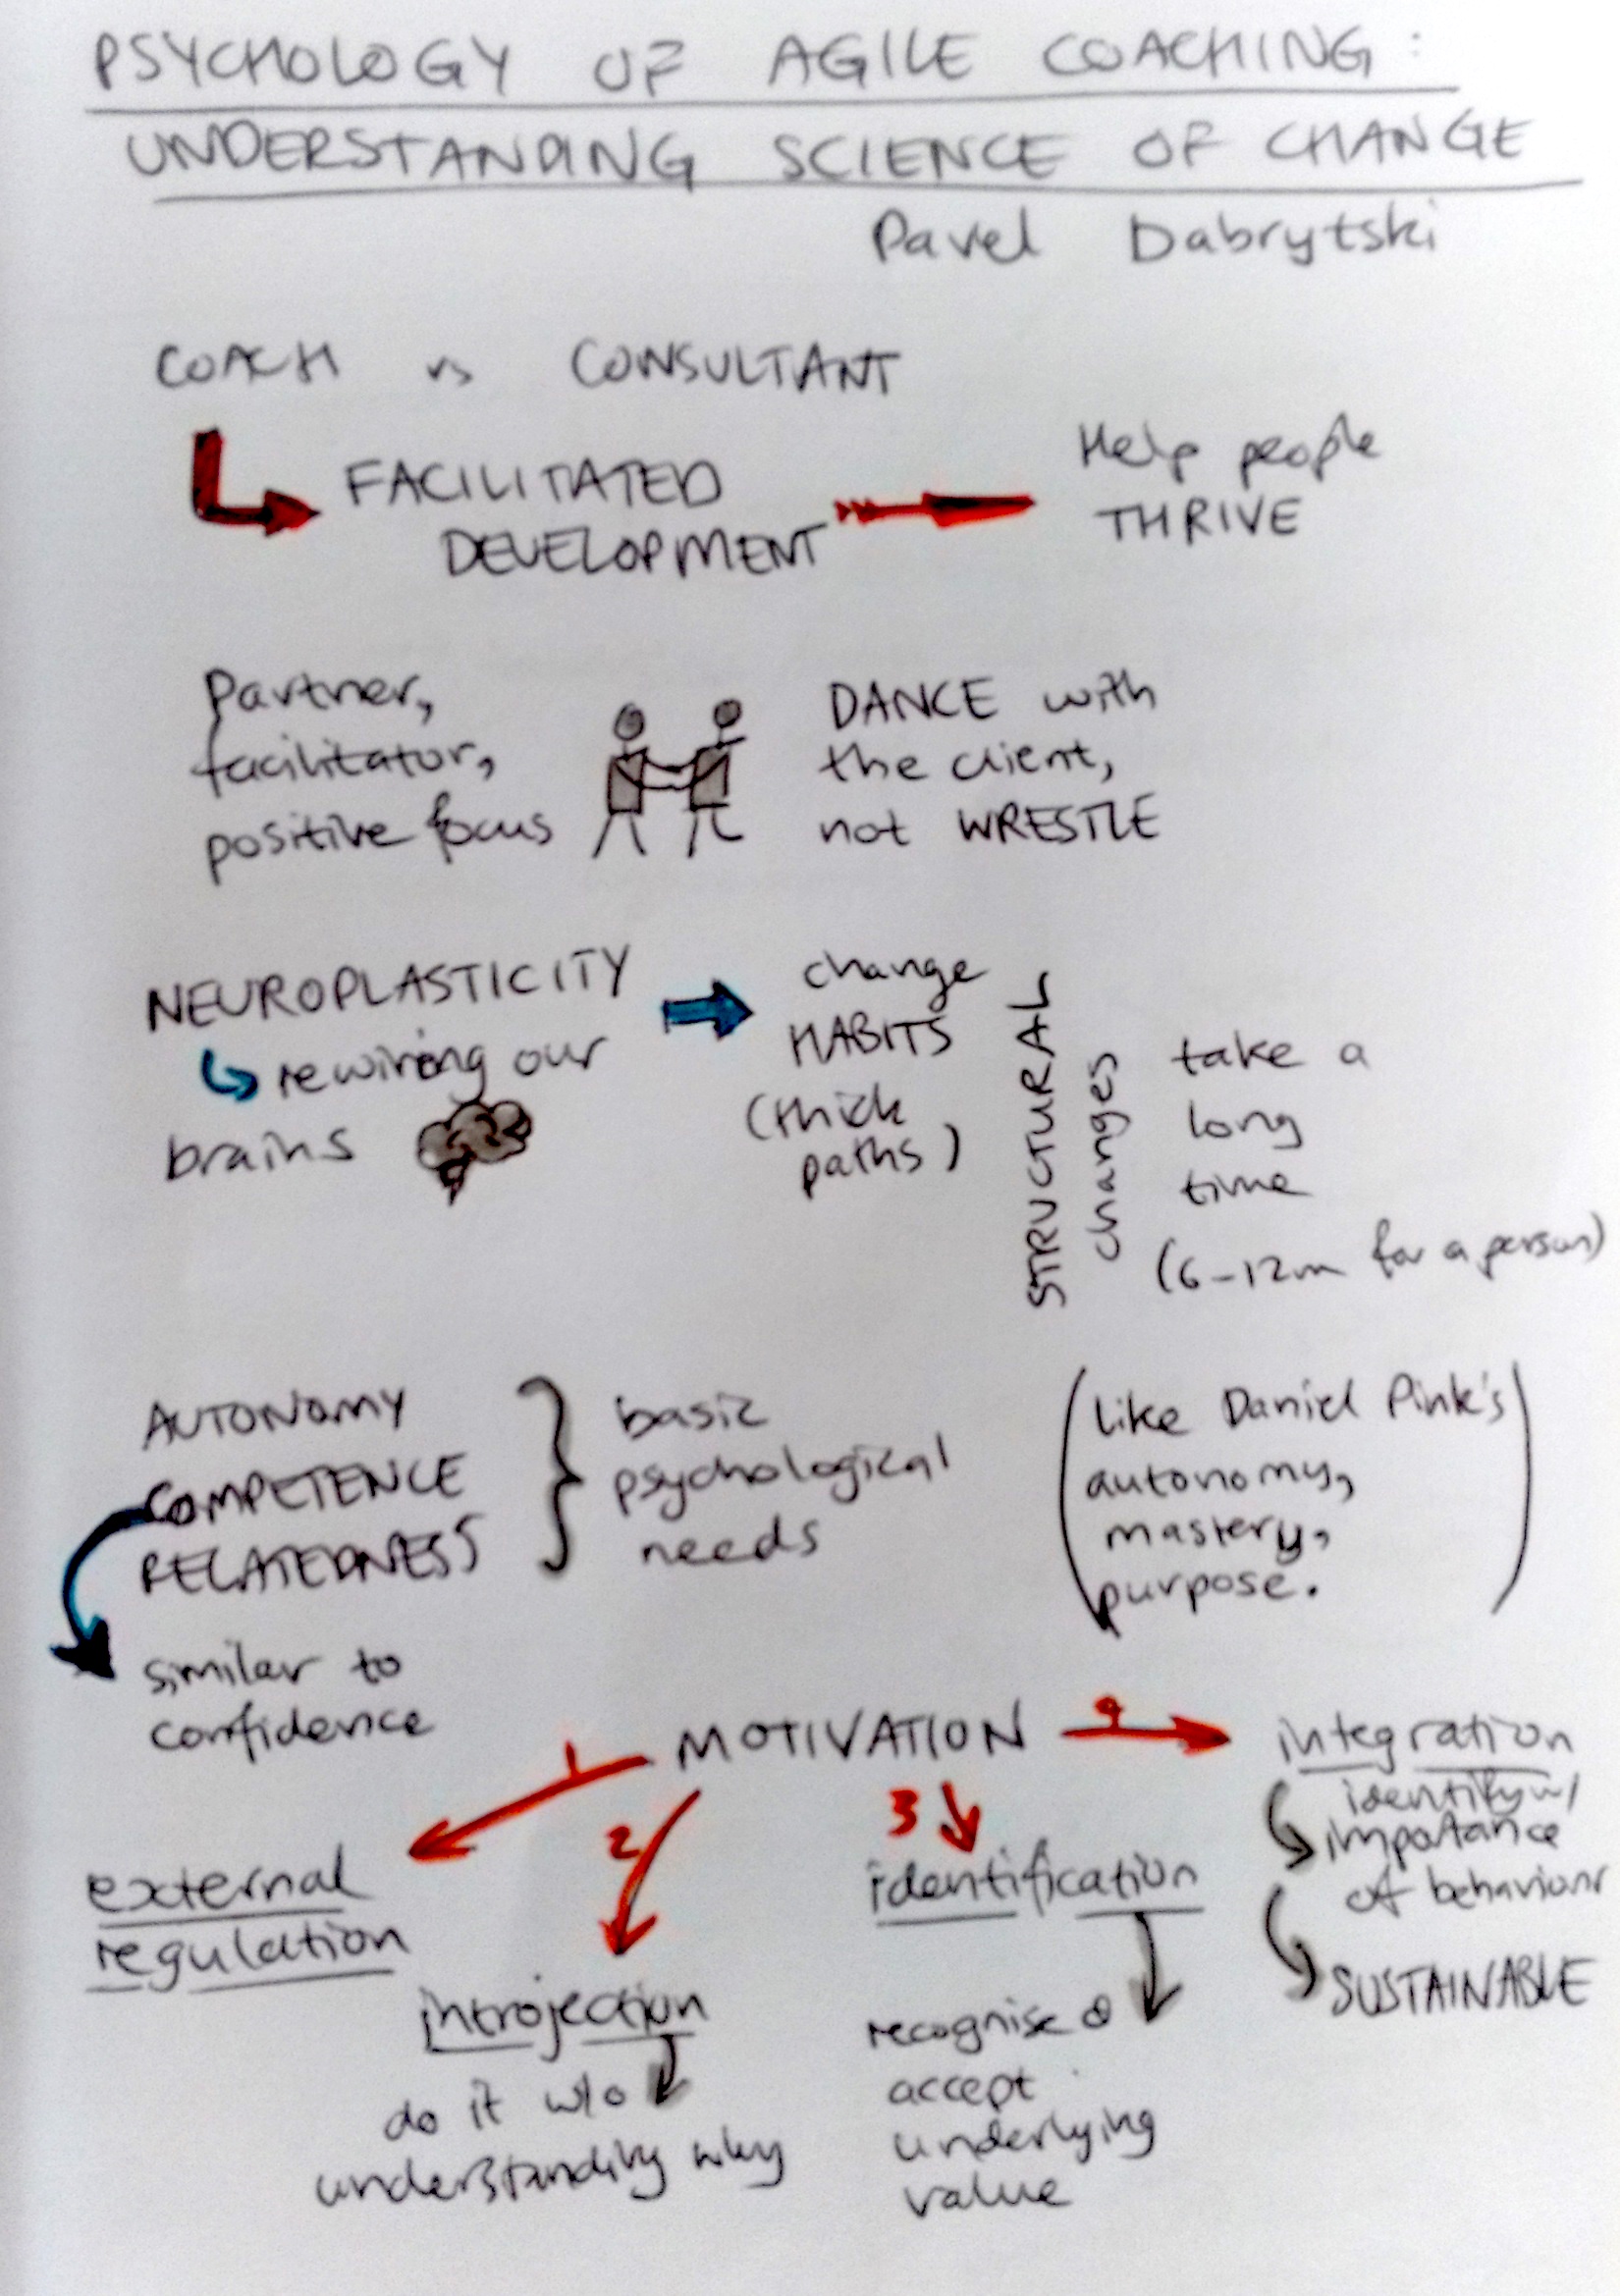 PSYCHOLOGY OF AGILE COACHING:
UNDERSTANDING SCIENCE OF CHANGE
Pavel Dabrytski
COACH vs CONSULTANT
FACILITATED
DEVELOPMENT
Help people
THRIVE
Partner,
facilitator,
positive focus
DANCE with
the client,
not WRESTLE
NEUROPLASTICITY
rewiring our
brains
change
HABITS
(thick
paths)
STRUCTURAL
changes
take a
long
time
(6-12m for a person)
AUTONOMY
COMPETENCE
RELATEDNESS
basic
psychological
needs
(like Daniel Pink's
autonomy,
mastery,
purpose.)
similar to
confidence
MOTIVATION
1
external
regulation
2
introjection
do it w/o
understanding why
3
identification
recognise &
accept
underlying
value
4
integration
identify w/
importance
of behaviour
SUSTAINABLE